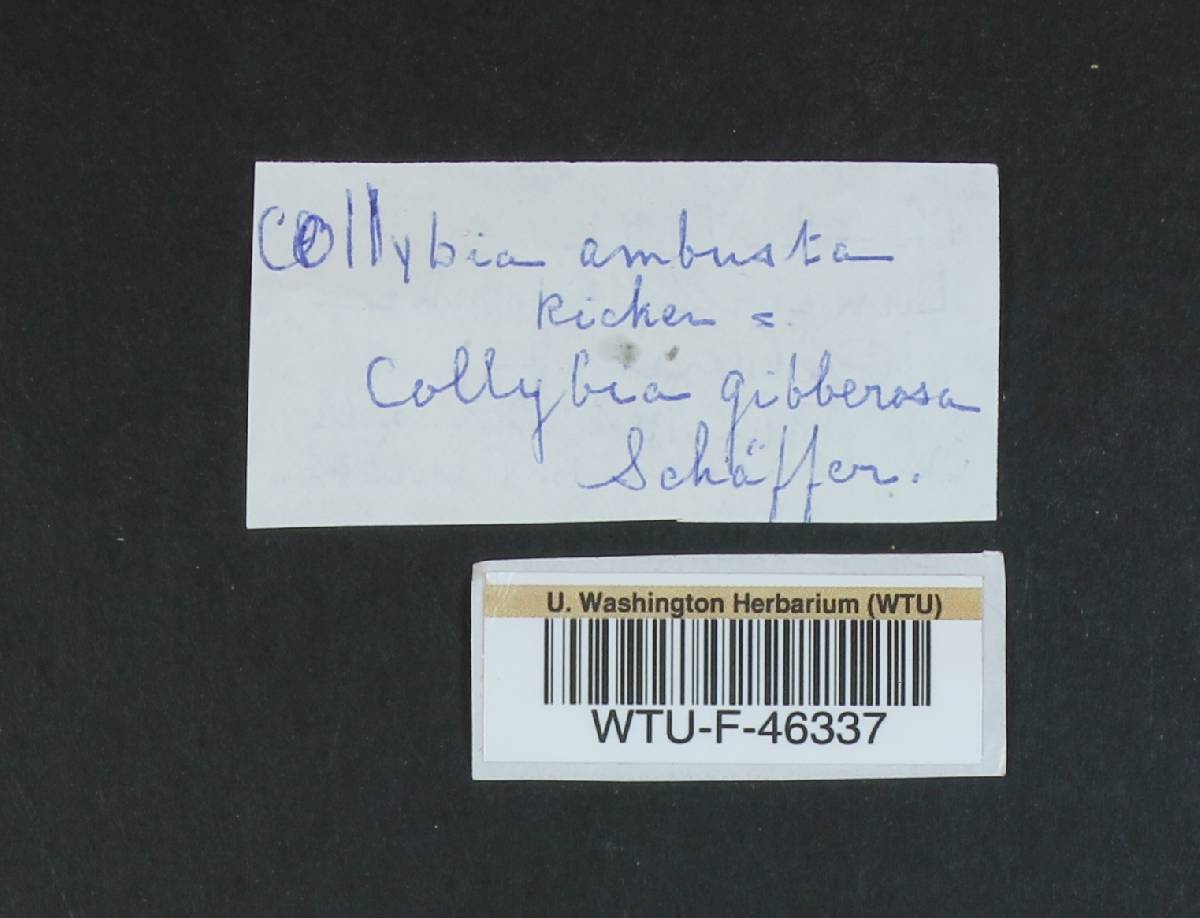 Collybia ambusta
Ricken =
Collybia gibberosa
Schäffer.
U. Washington Herbarium (WTU)
WTU-F-46337